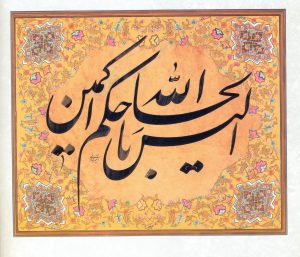 الیس الله باحکم الحاکمین